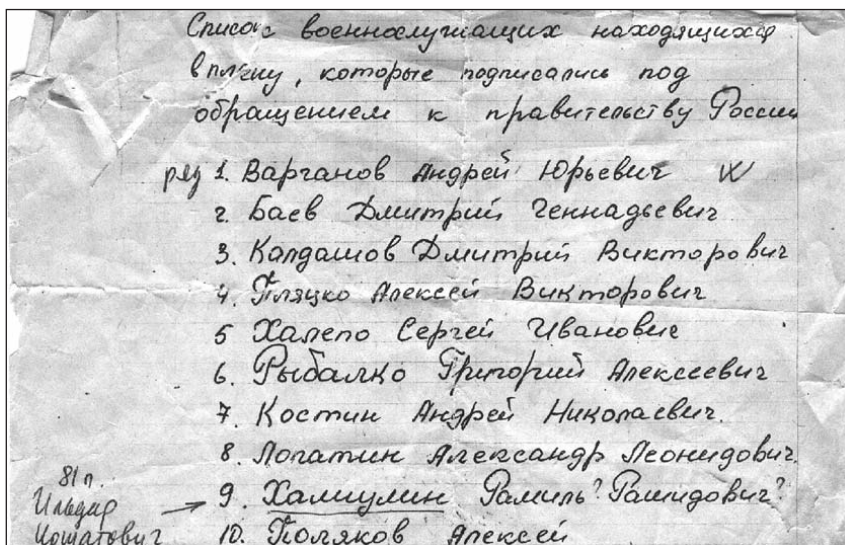 Список военнослужащих находящихся
в плену, которые подписались под
обращением к правительству России
ряд 1. Варганов Андрей Юрьевич
2. Баев Дмитрий Геннадьевич
3. Калдашов Дмитрий Викторович
4. Пляцко Алексей Викторович
5 Халепо Сергей Иванович
6. Рыбалко Григорий Алексеевич
7. Костин Андрей Николаевич.
8. Лопатин Александр Леонидович.
81 п.
Ильдар
→ 9. Хамиулин Рамиль? Рашидович?
10. Поляков Алексей